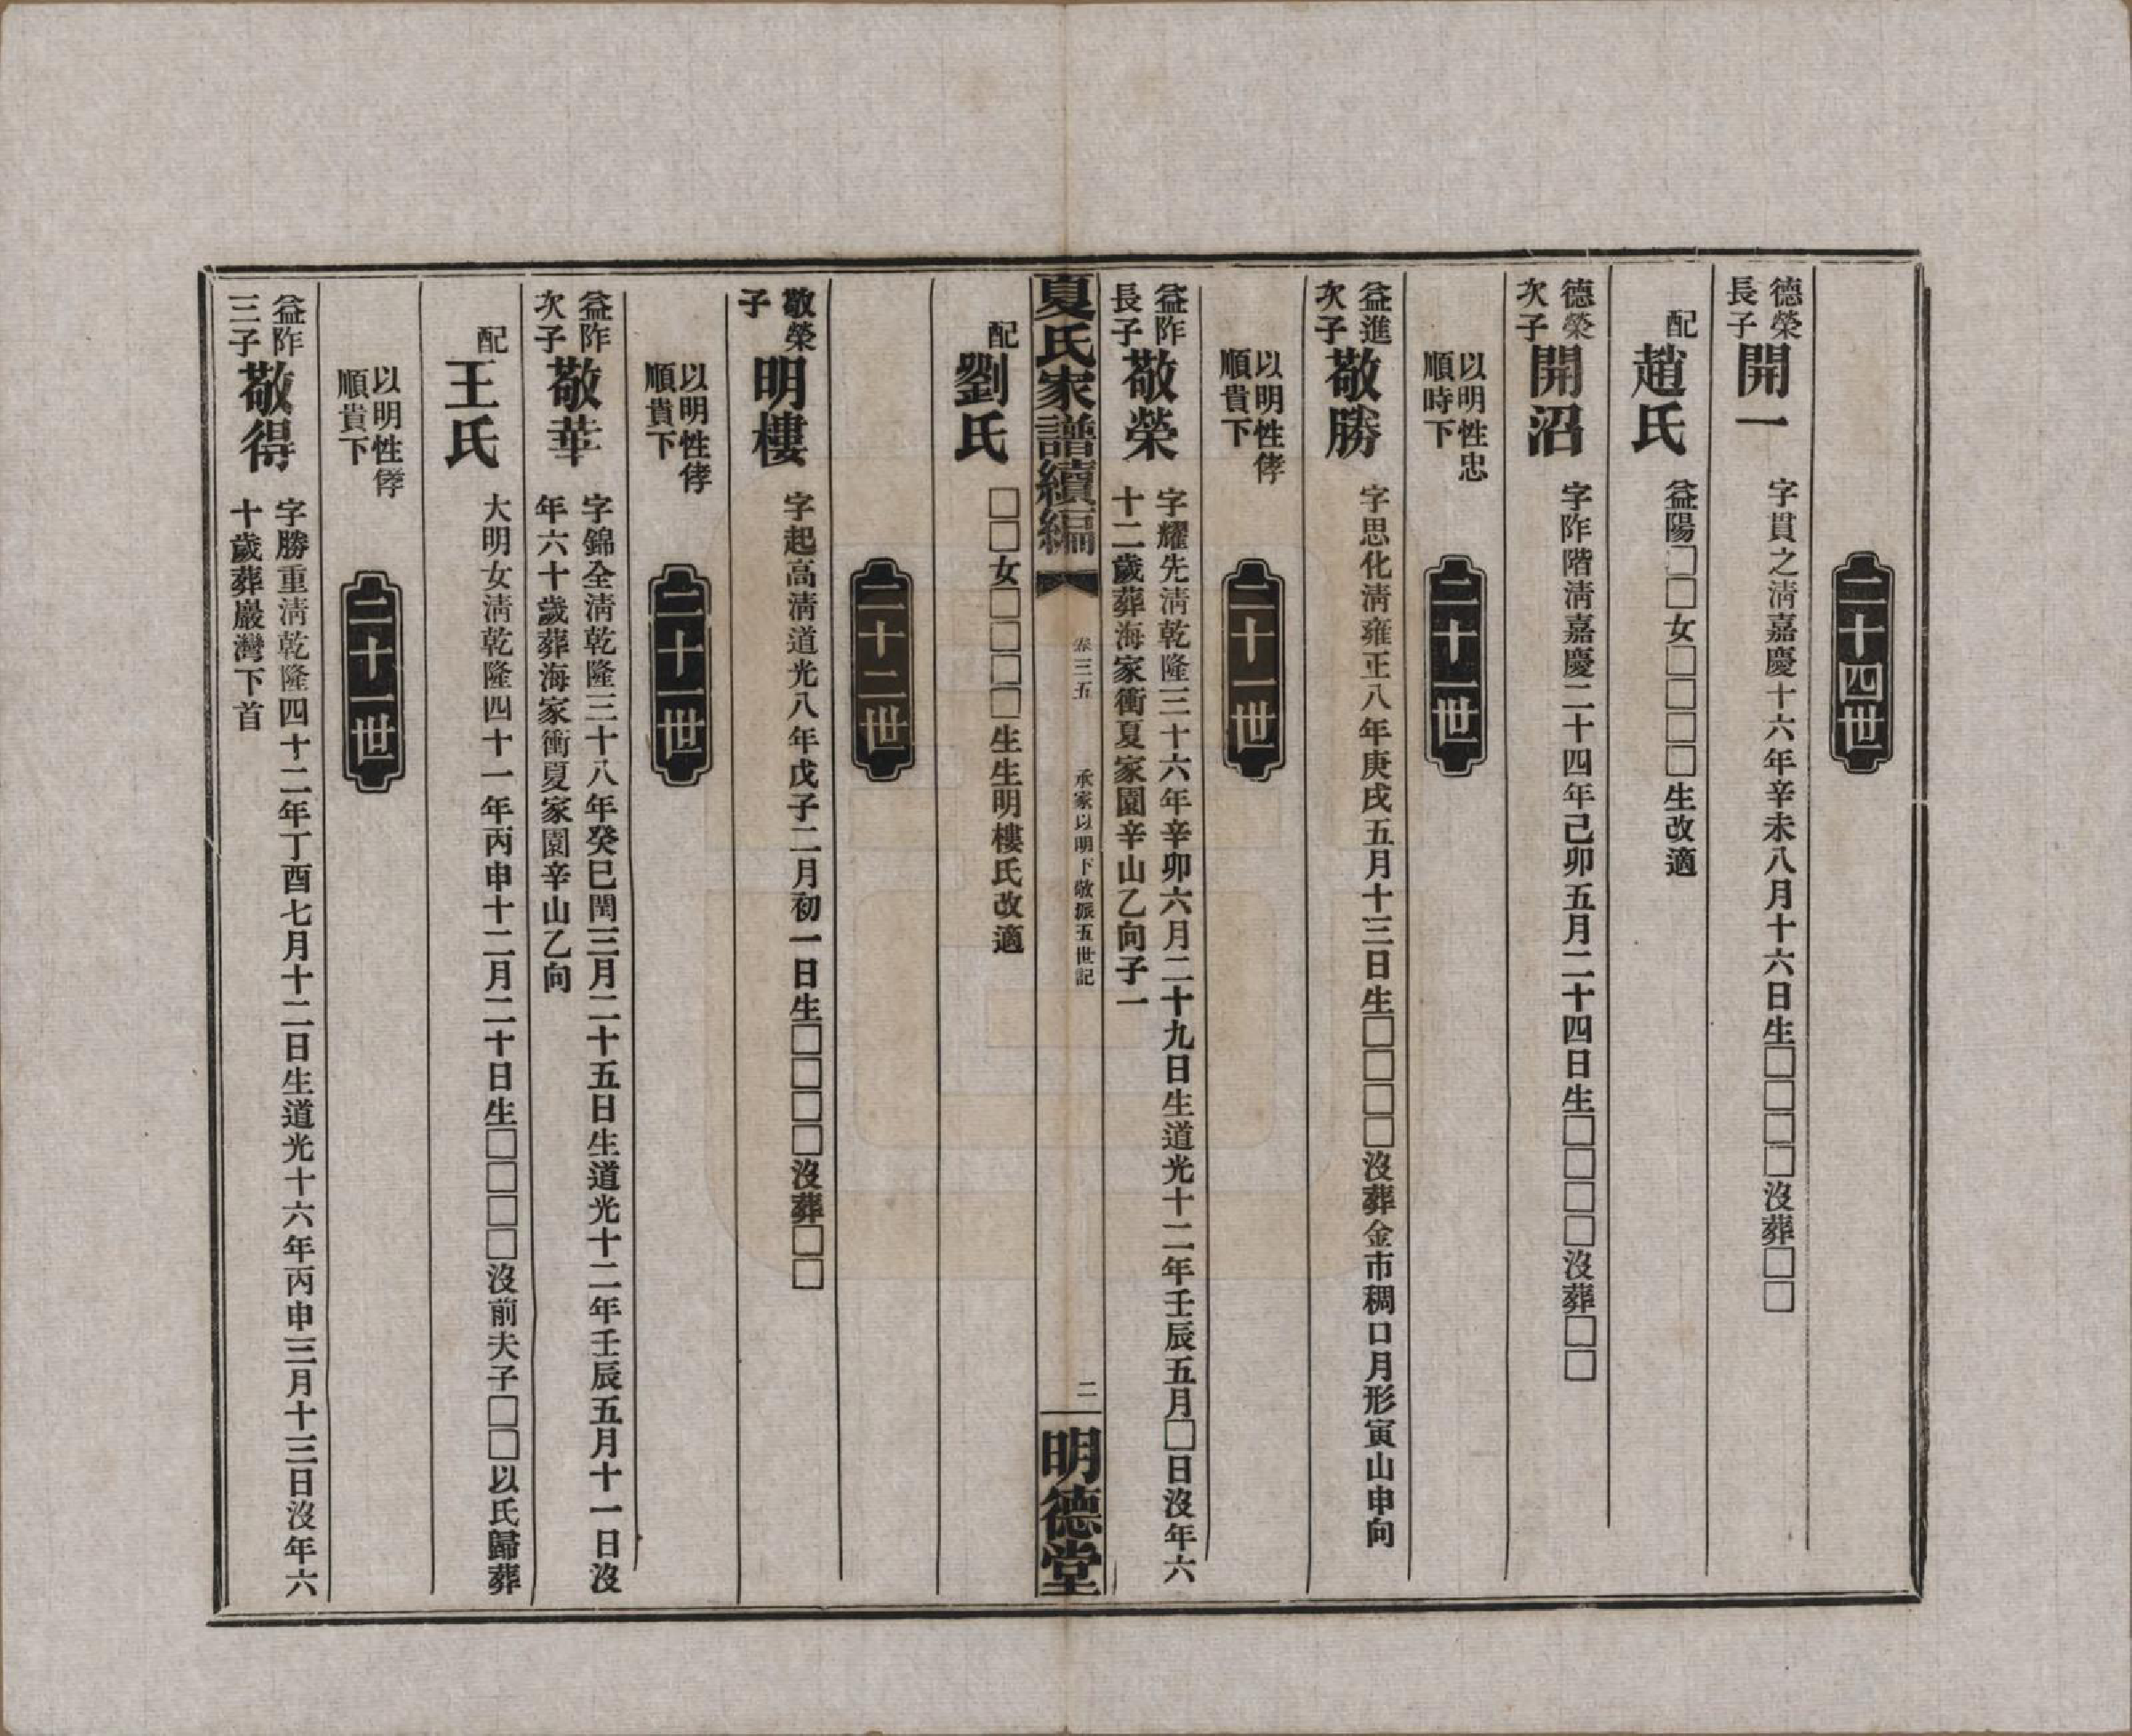 二十四世
德榮長子
開一
字貫之淸嘉慶十六年辛未八月十六日生□□□□沒葬□□
配
趙氏
益陽□□女□□□□生改適
德榮次子
開沼
字阼階淸嘉慶二十四年己卯五月二十四日生□□□□沒葬□□
以明性忠
順時下
二十一世
益進次子
敬勝
字思化淸雍正八年庚戌五月十三日生□□□□沒葬金市稠口月形寅山申向
以明性侾
順貴下
二十一世
益阼長子
敬榮
字耀先淸乾隆三十六年辛卯六月二十九日生道光十二年壬辰五月□日沒年六
十二歲葬海家衝夏家園辛山乙向子一
夏氏家譜續編
卷三五
承家以明下敬派五世記
二
明德堂
配
劉氏
□□女□□□□生生明樓氏改適
二十二世
敬榮子
明樓
字起高淸道光八年戊子二月初一日生□□□□沒葬□□
以明性侾
順貴下
二十一世
益阼次子
敬華
字錦全淸乾隆三十八年癸巳閏三月二十五日生道光十二年壬辰五月十一日沒
年六十歲葬海家衝夏家園辛山乙向
配
王氏
大明女淸乾隆四十一年丙申十二月二十日生□□□□沒前夫子□□以氏歸葬
以明性侾
順貴下
二十一世
益阼三子
敬得
字勝重淸乾隆四十二年丁酉七月十二日生道光十六年丙申三月十三日沒年六
十歲葬嚴灣下首